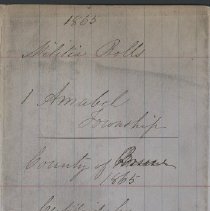 1865
Militia Rolls
1 Amabel
Township
County of Bruce
1865